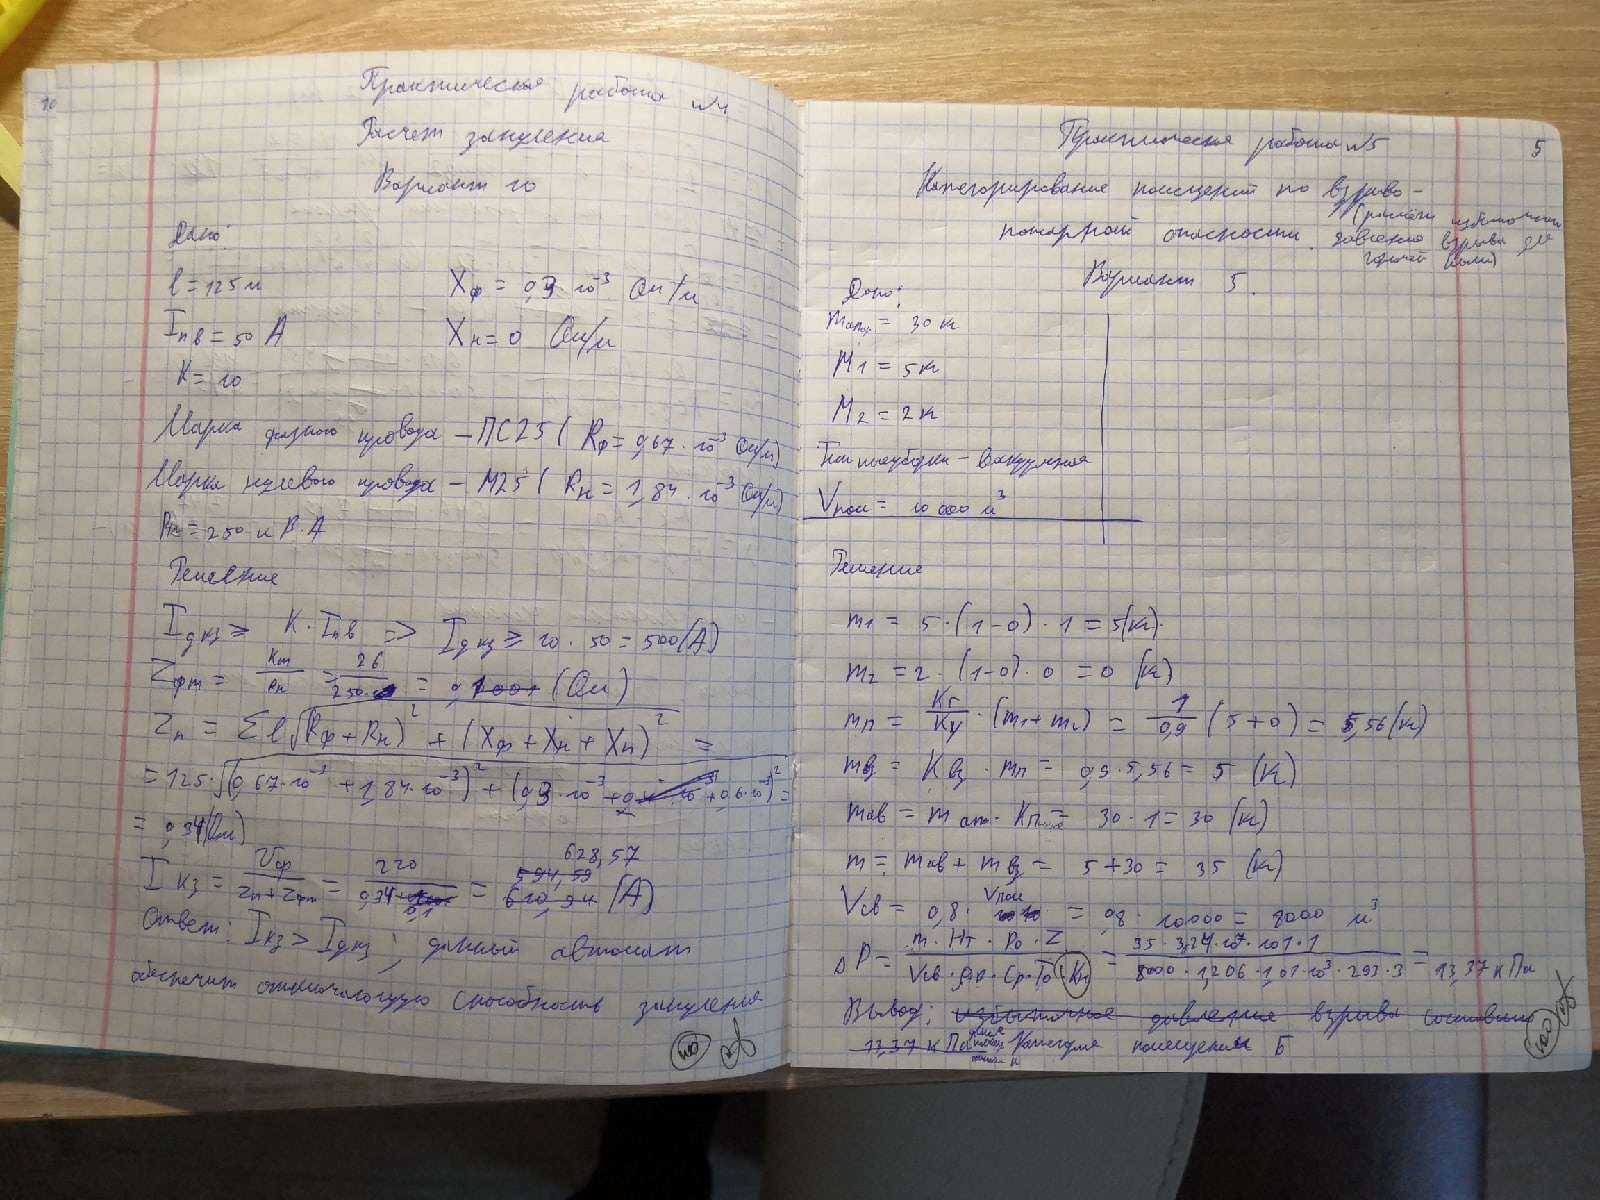 10
Практическая работа №4
Расчет зануления
Вариант 10
Дано:
l = 125 м
Xф = 0,3 · 10⁻³ Ом/м
Iпв = 50 А
Xн = 0 Ом/м
K = 10
Марка фазного провода – ПС25 ( Rф = 0,67 · 10⁻³ Ом/м)
Марка нулевого провода – М25 ( Rн = 1,84 · 10⁻³ Ом/м)
Pн = 250 к В·А
Решение
Iдкз ≥ K · Iпв => Iдкз ≥ 10 · 50 = 500 (А)
Zфт = Kт/Pн = 26/250 = 0,1 (Ом)
Zп = Σl√(Rф + Rн)² + (Xф + Xн + Xп)² =
= 125 · √(0,67·10⁻³ + 1,84·10⁻³)² + (0,3 · 10⁻³ + 0,6·10⁻³)² =
= 0,34 (Ом)
Iкз = Uф/(Zп+Zфт) = 220/(0,34+0,1) = 628,57 (А)
Ответ: Iкз > Iдкз ; данный автомат
обеспечит отключающую способность зануления
100
Практическая работа №5
5
Категорирование помещений по взрыво-
пожарной опасности. (расчёт избыточного
давления взрыва для
горючей пыли)
Вариант 5.
Дано:
mапп = 30 кг
M1 = 5 кг
M2 = 2 кг
Тип пылеуборки – Вакуумная
Vпом = 10 000 м³
Решение
m1 = 5 · (1-0) · 1 = 5 (кг).
m2 = 2 · (1-0) · 0 = 0 (кг)
mп = Kг/Kу · (m1 + m2) = 1/0,9 (5 + 0) = 5,56 (кг)
mвз = Kвз · mп = 0,9 · 5,56 = 5 (кг)
mав = mап · Kп = 30 · 1 = 30 (кг)
m = mав + mвз = 5 + 30 = 35 (кг)
Vсв = 0,8 · Vпом = 0,8 · 10000 = 8000 м³
ΔP = m · Hт · P0 · Z / Vсв · ρв · Cp · T0 · Kн = 35 · 3,24·10⁷ · 101 · 1 / 8000 · 1,206 · 1,01·10³ · 293 · 3 = 13,37 кПа
Вывод: избыточное давление взрыва составило
13,37 кПа Категория помещения Б
100